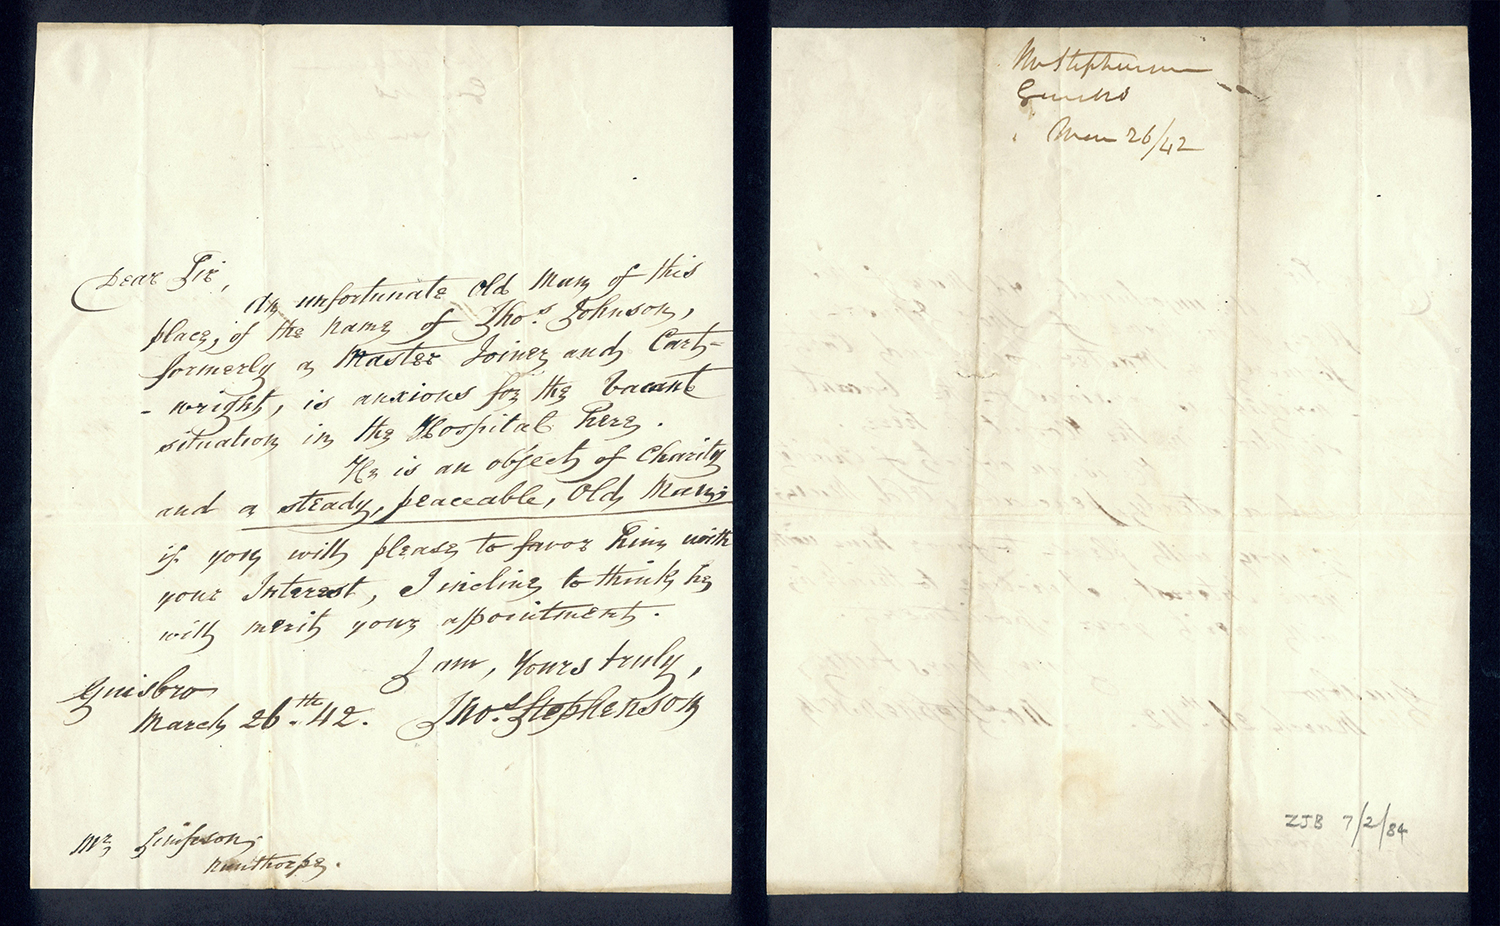 Dear Sir,
An unfortunate Old Man of this
place, of the name of Thos. Johnson,
formerly a Master Joiner and Cart-
-wright, is anxious for the vacant
situation in the Hospital here.
He is an object of Charity
and a steady, peaceable, Old Man;
if you will please to favor him with
your Interest, I incline to think he
will merit your appointment.
I am, Yours truly,
Guisbro
March 26.th 42. Thos. Stephenson
Mr Simpson,
Nunthorpe.
Stephenson
Guisbro
26/42
ZJB 7/2/84